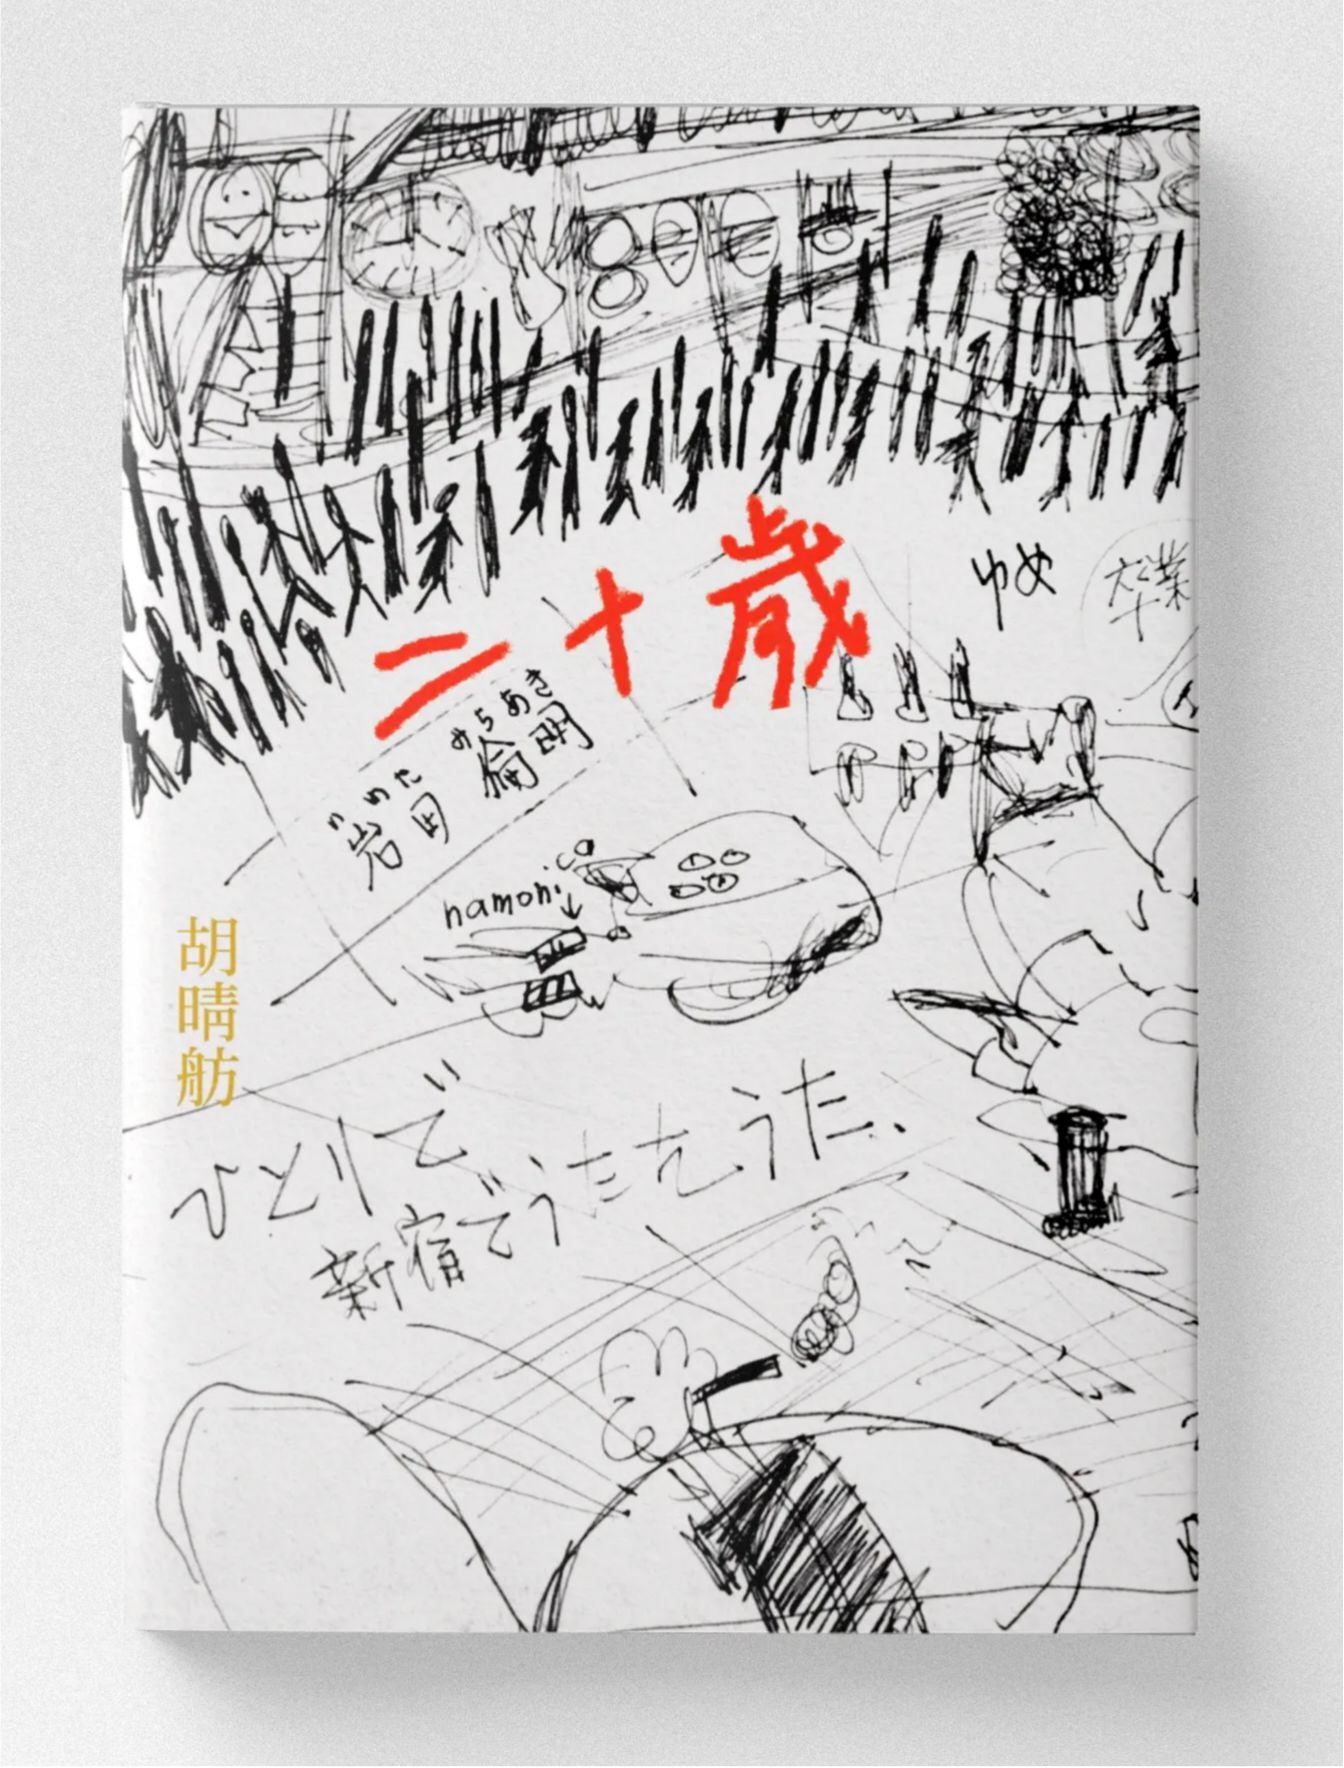 二十歳
ゆめ
卒業
みちあき
いわた
岩田 倫明
namoni
胡晴舫
ひとりで
新宿でうたをうた、